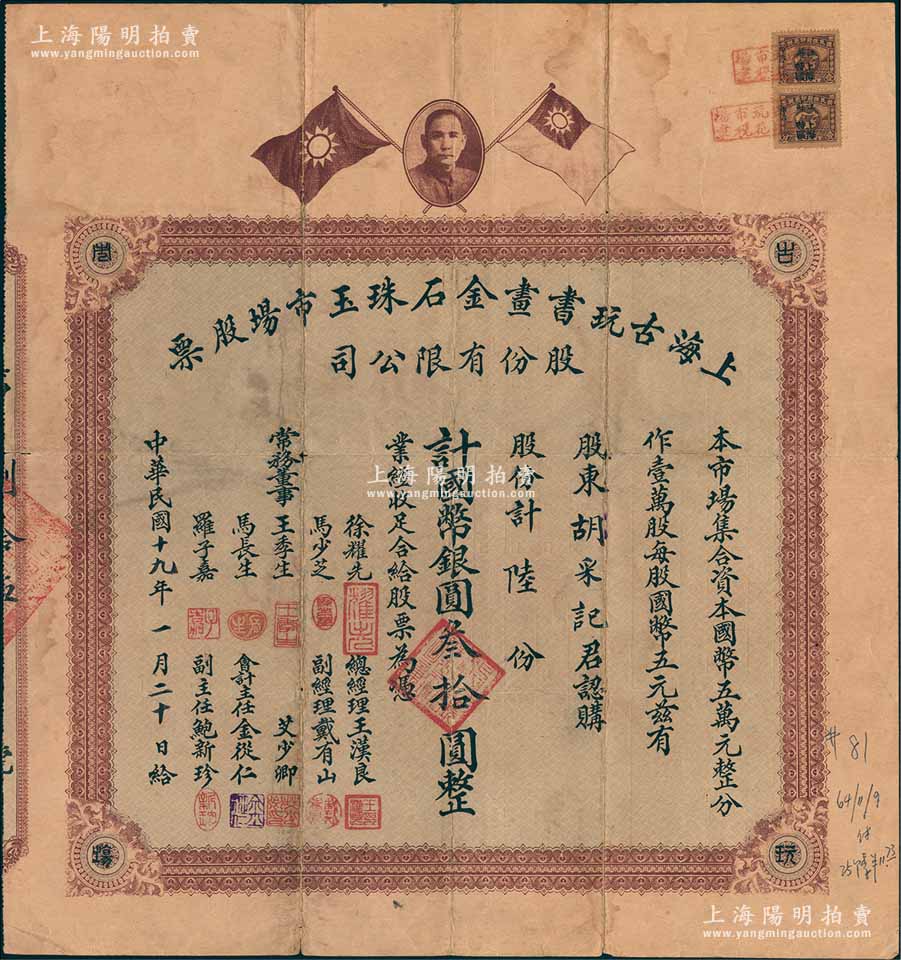 上海陽明拍賣
www.yangmingauction.com
上海古玩書畫金石珠玉市場股票
股份有限公司
古
玩
市
場
本市場集合資本國幣五萬元整分
作壹萬股每股國幣五元茲有
股東胡采記君認購
股份計陸份
計國幣銀圓叁拾圓整
業經收足合給股票為憑
徐耀先
馬少芝
常務董事王季生
馬長生
羅子嘉
總經理王漢良
副經理戴有山
艾少卿
會計主任金從仁
副主任鮑新珍
中華民國十九年一月二十日給
上海陽明拍賣
www.yangmingauction.com
81
64/11/9
上海陽明拍賣
www.yangmingauction.com